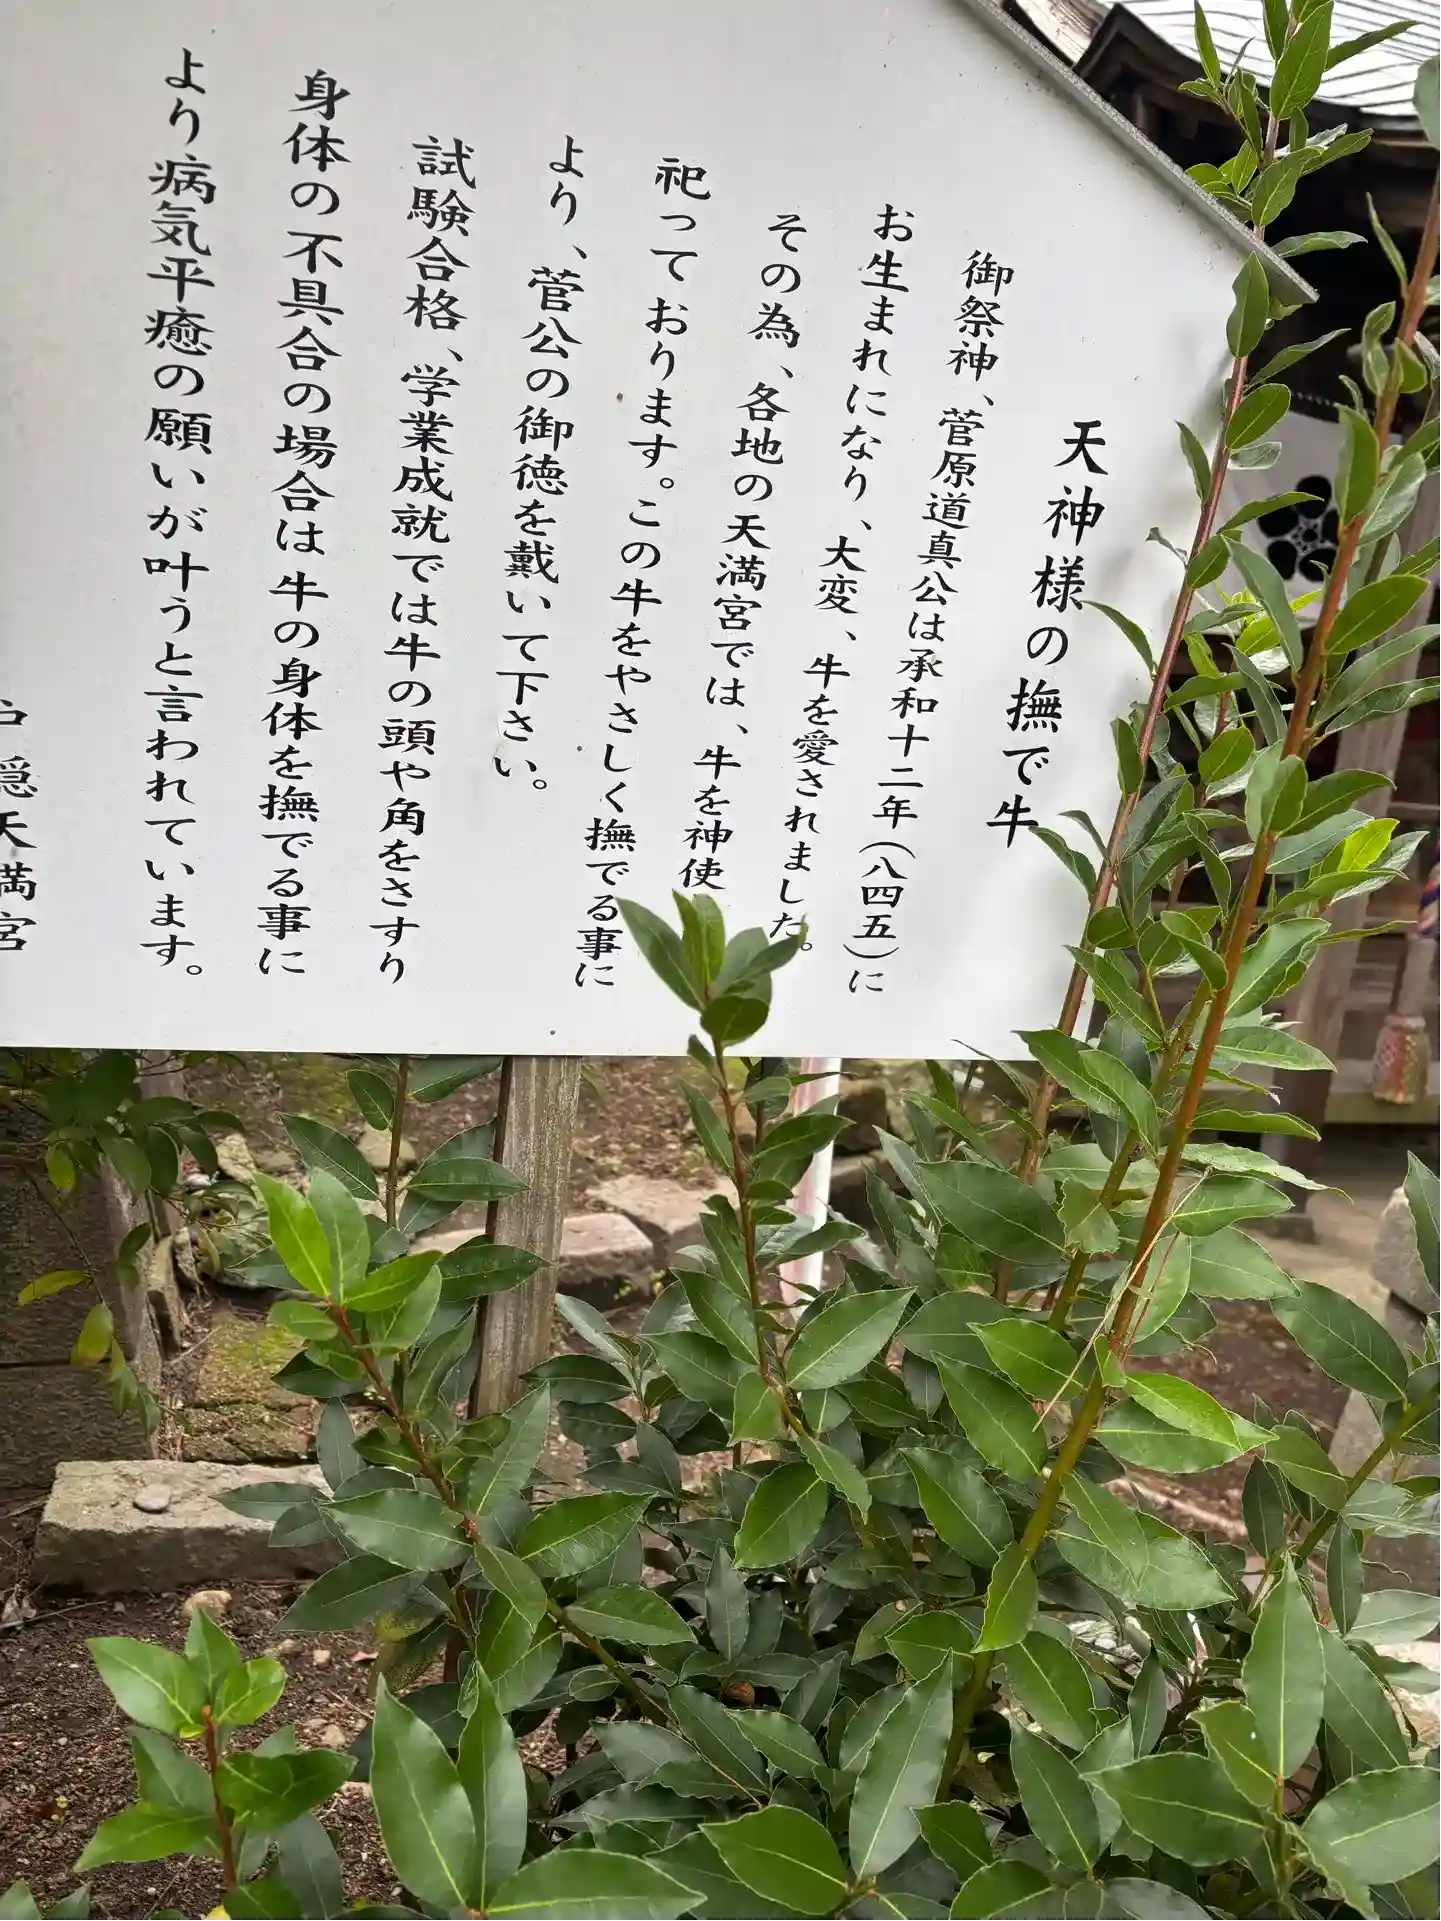 天神様の撫で牛
御祭神、菅原道真公は承和十二年(八四五)に
お生まれになり、大変、牛を愛されました。
その為、各地の天満宮では、牛を神使
祀っております。この牛をやさしく撫でる事に
より、菅公の御徳を戴いて下さい。
試験合格、学業成就では牛の頭や角をさすり
身体の不具合の場合は牛の身体を撫でる事に
より病気平癒の願いが叶うと言われています。
隠天満宮